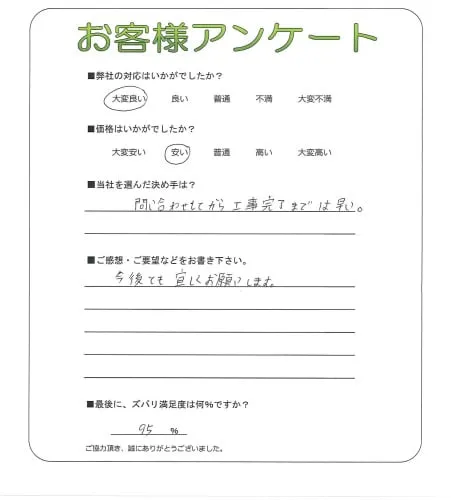 お客様アンケート
■弊社の対応はいかがでしたか?
大変良い 良い 普通 不満 大変不満
■価格はいかがでしたか?
大変安い 安い 普通 高い 大変高い
■当社を選んだ決め手は?
問い合わせしてから工事完了までは早い。
■ご感想・ご要望などをお書き下さい。
今後ても宜しくお願いします。
■最後に、ズバリ満足度は何%ですか?
95 %
ご協力頂き、誠にありがとうございました。